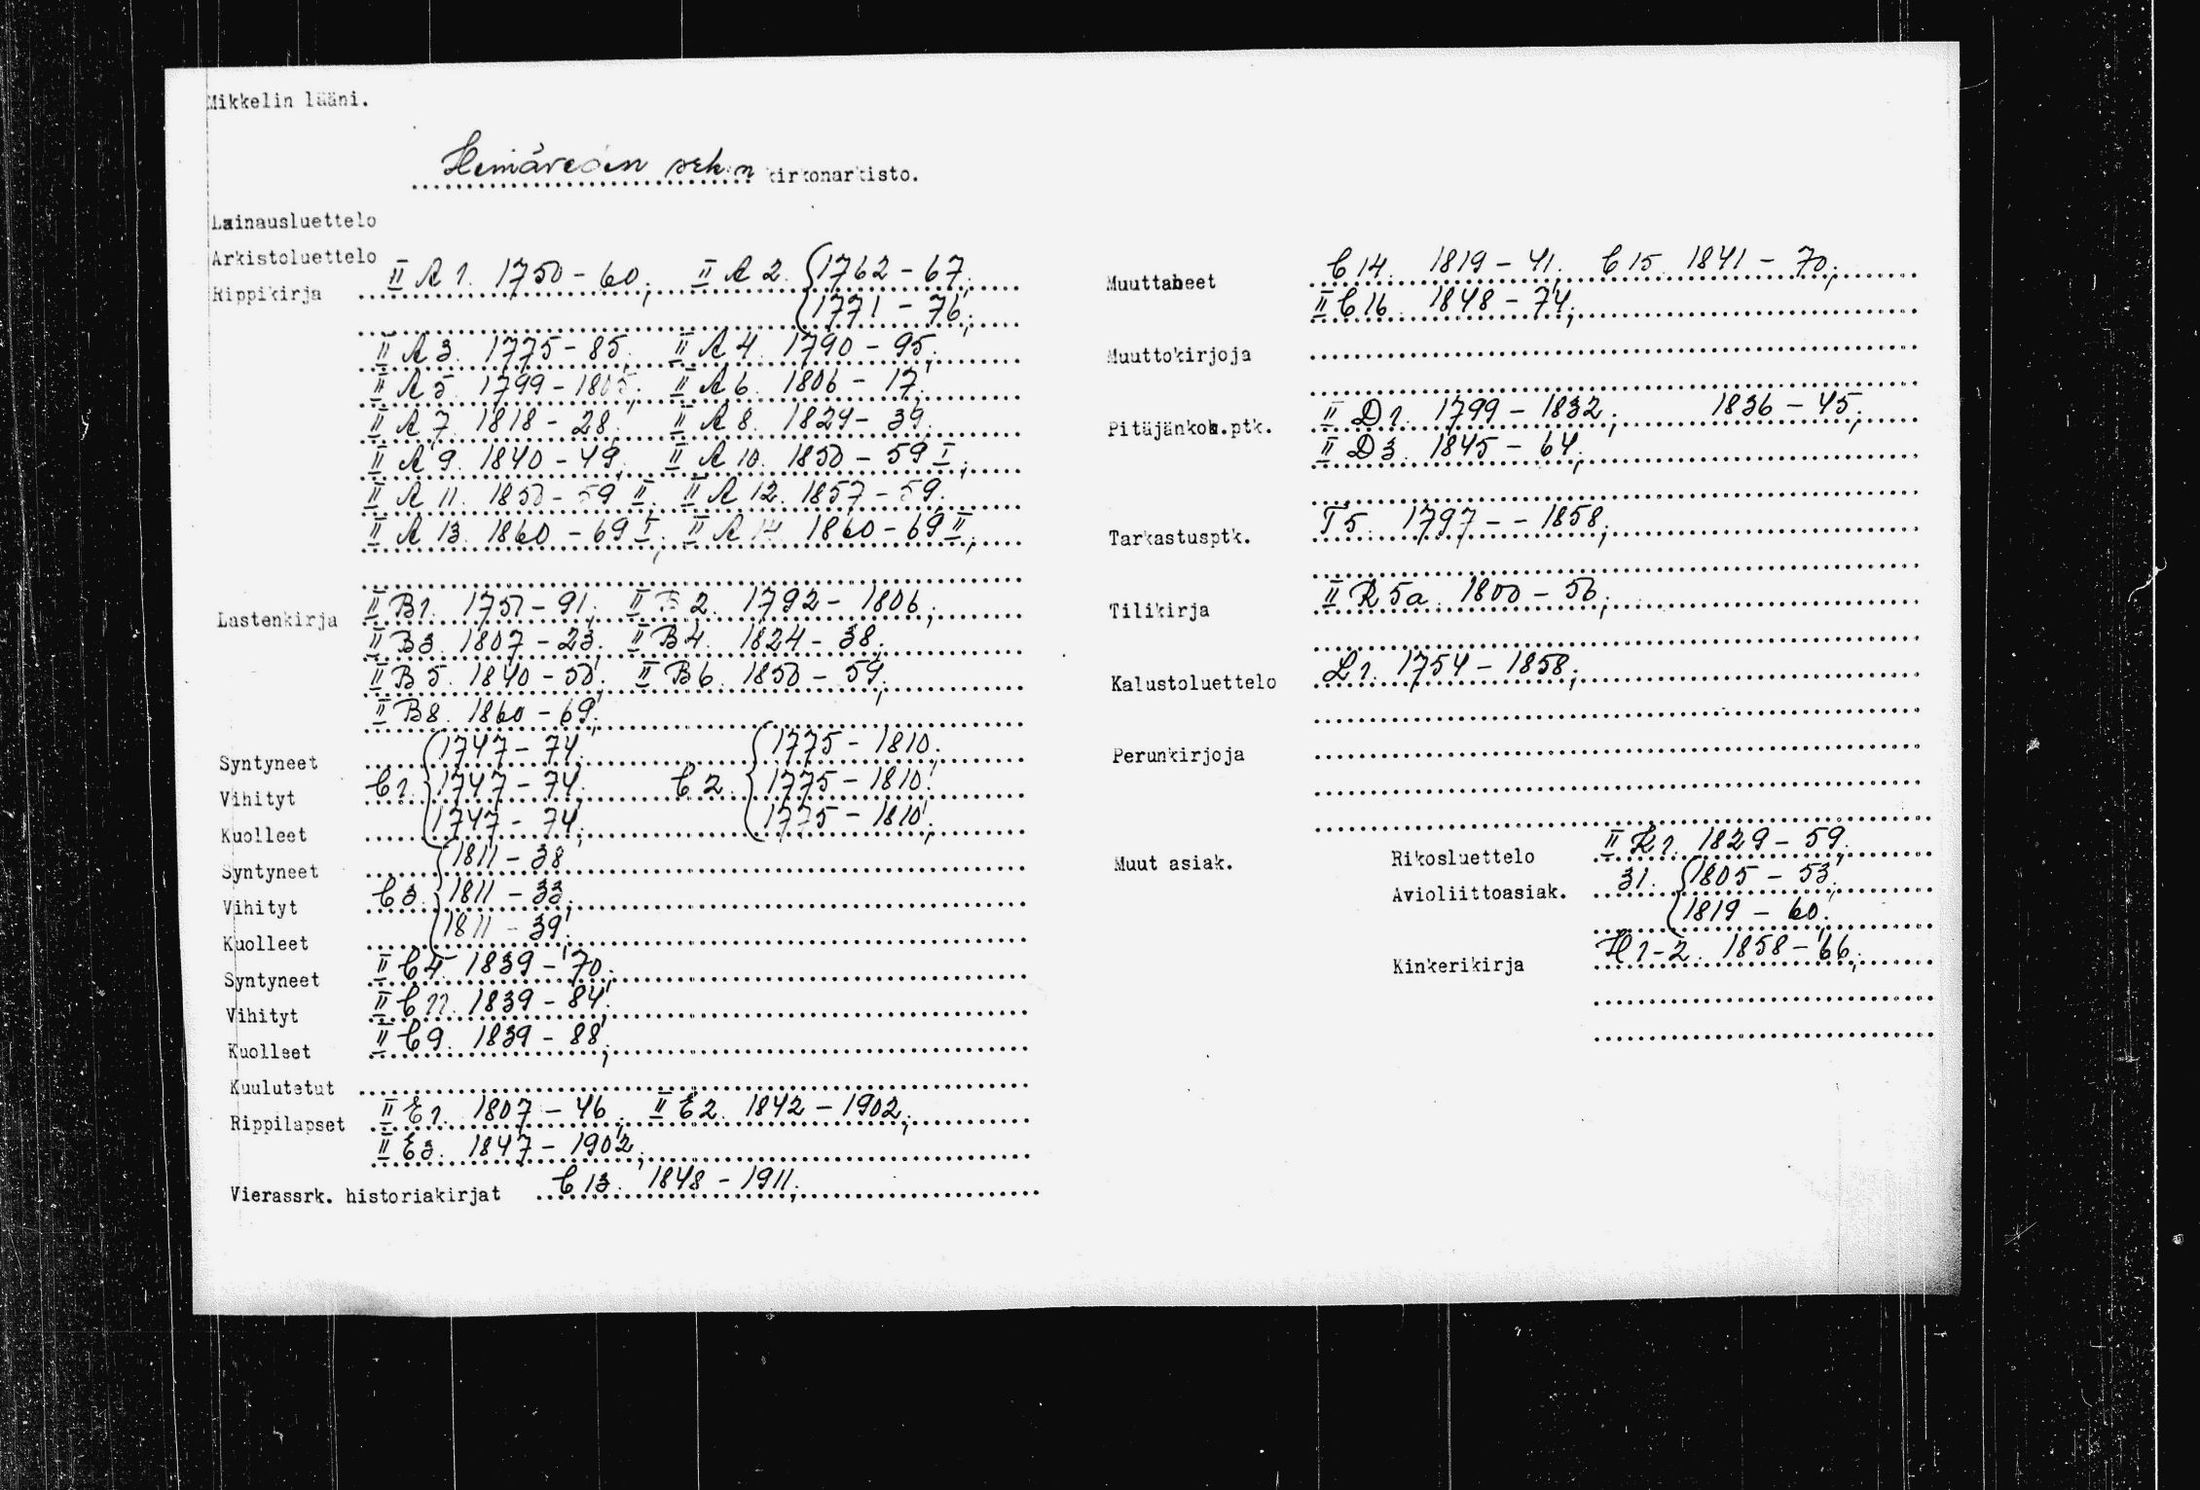 Mikkelin lääni.
Heinäveden srk:n kirkonarkisto.
Lainausluettelo
Arkistoluettelo
Rippikirja II A 1. 1750-60; II A 2. 1762-67;
1771-76;
II A 3. 1775-85. II A 4. 1790-95;
II A 5. 1799-1805; II A 6. 1806-17;
II A 7. 1818-28; II A 8. 1829-39.
II A 9. 1840-49; II A 10. 1850-59 I;
II A 11. 1850-59 II; II A 12. 1857-59.
II A 13. 1860-69 I; II A 14. 1860-69 II;
Lastenkirja II B 1. 1751-91; II B 2. 1792-1806;
II B 3. 1807-23; II B 4. 1824-38;
II B 5. 1840-50; II B 6. 1850-59;
II B 8. 1860-69;
Syntyneet 1747-74; 1775-1810;
Vihityt C 1. 1747-74; C 2. 1775-1810;
Kuolleet 1747-74; 1775-1810;
Syntyneet 1811-38
Vihityt C 3. 1811-33;
Kuolleet 1811-39;
Syntyneet II C 4. 1839-70;
Vihityt II C 11. 1839-84;
Kuolleet II C 9. 1839-88;
Kuulutetut
Rippilapset II E 1. 1807-46; II E 2. 1842-1902;
II E 3. 1847-1902;
Vierassrk. historiakirjat C 13. 1848-1911;
Muuttaneet C 14. 1819-41; C 15. 1841-70;
II C 16. 1848-74;
Muuttokirjoja
Pitäjänkok.ptk. II D 1. 1799-1832; 1836-45;
II D 3. 1845-64;
Tarkastusptk. T 5. 1797--1858;
Tilikirja II R 5a. 1800-56;
Kalustoluettelo L 1. 1754-1858;
Perunkirjoja
Muut asiak. Rikosluettelo II R 1. 1829-59.
Avioliittoasiak. 31. 1805-53;
1819-60;
Kinkerikirja H 1-2. 1858-66;